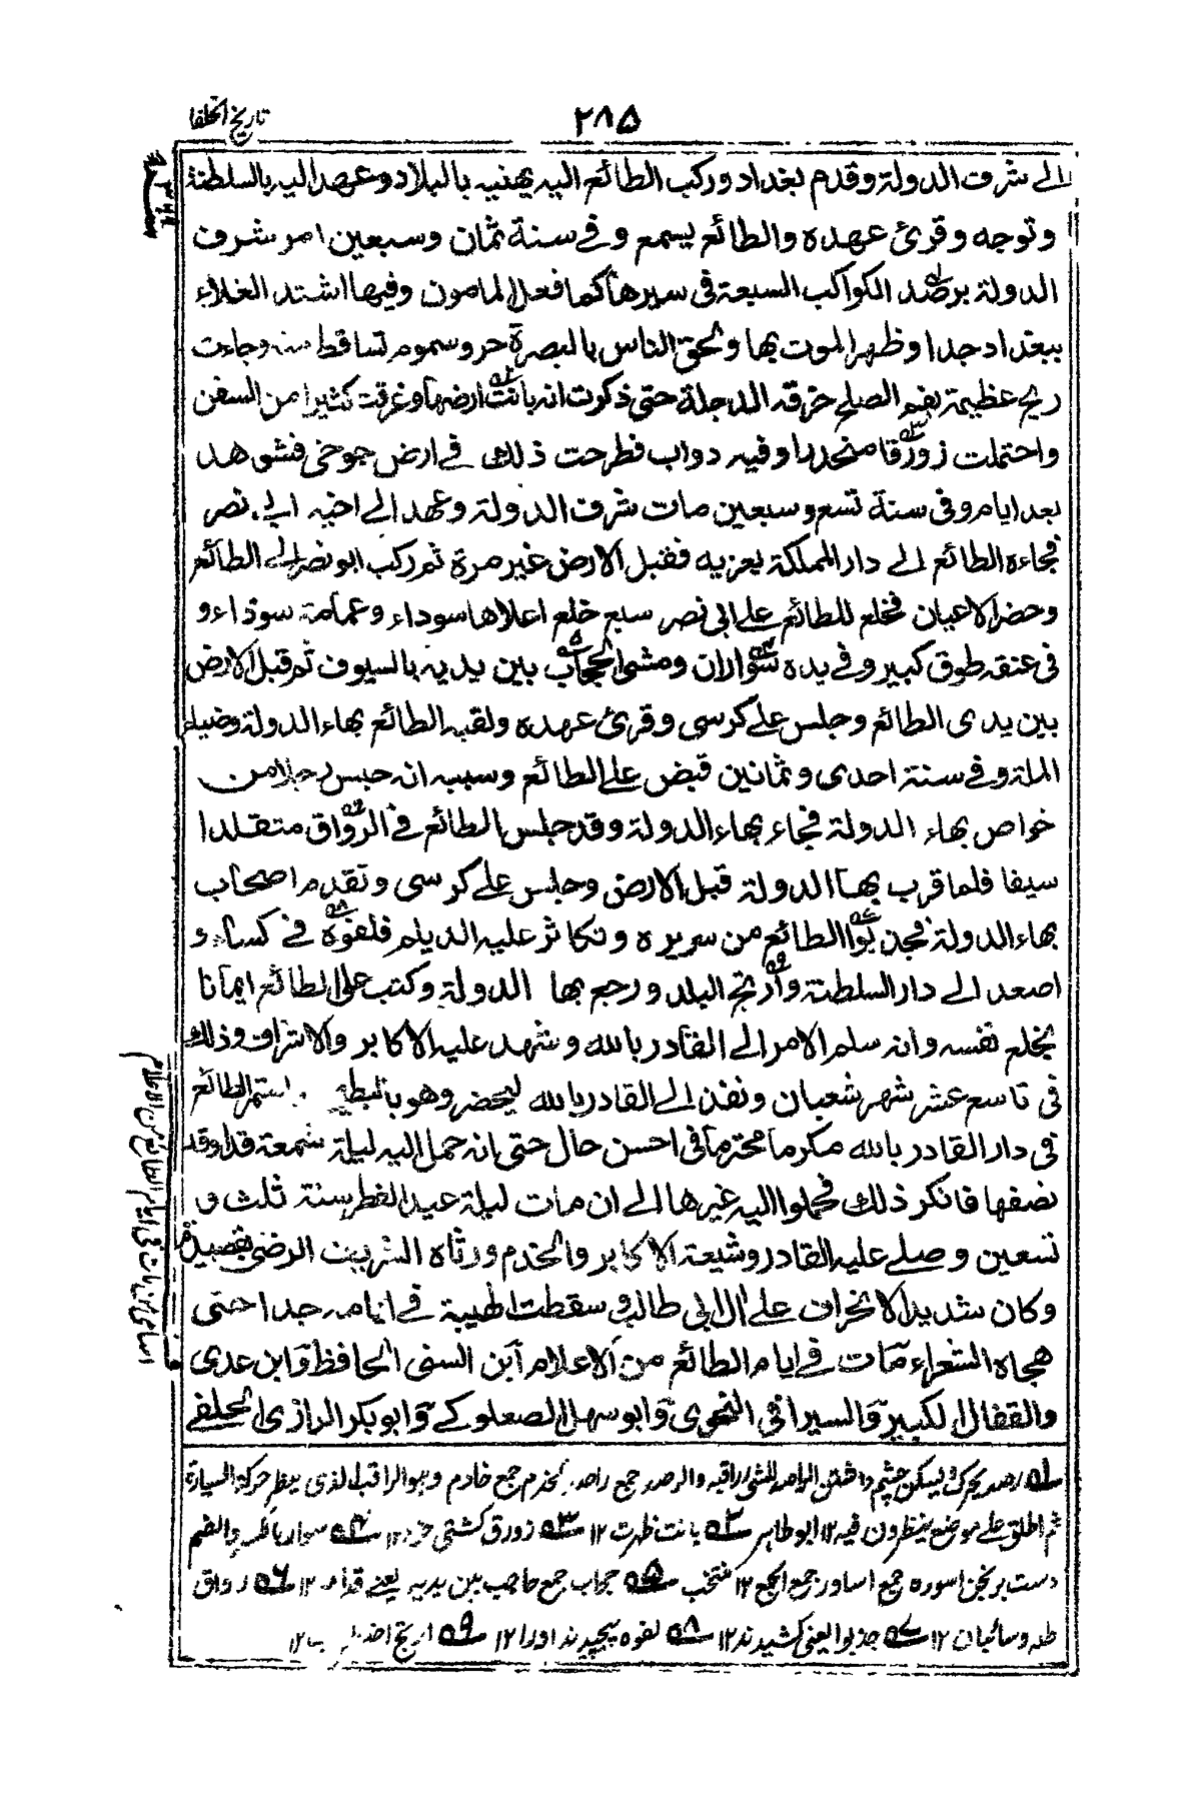 ۲۸۵
تاريخ الخلفا
الى شرف الدولة وقدم بغداد وركب الطائع اليه يهنيه بالبلاد وعهد اليه بالسلطنة
وتوجه وقرئ عهده والطائع يسمع وفى سنة ثمان وسبعين امر شرف
الدولة برصد الكواكب السبعة فى سيرها كما فعل المامون وفيها اشتد الغلاء
ببغداد جدا وظهر الموت بها ولحق الناس بالبصرة حر وسموم تساقط منه وجاءت
ريح عظيمة بفم الصلح خرقت الدجلة حتى ذكرت انه بانت ارضها وغرقت كثيرا من السفن
واحتملت زورقا منحدرا وفيه دواب فطرحت ذلك فى ارض جوخى فشوهد
بعد ايام وفى سنة تسع وسبعين مات شرف الدولة وعهد الى اخيه ابى نصر
فجاءه الطائع الى دار المملكة يعزيه فقبل الارض غير مرة ثم ركب ابو نصر الى الطائع
وحضر الاعيان فخلع للطائع على ابى نصر سبع خلع اعلاها سوداء وعمامة سوداء و
فى عنقه طوق كبير وفى يده سواران ومشى الحجاب بين يديه بالسيوف ثم قبل الارض
بين يدى الطائع وجلس على كرسى وقرئ عهده ولقبه الطائع بهاء الدولة وضياء
الملة وفى سنة احدى وثمانين قبض على الطائع وسببه انه حبس رجلا من
خواص بهاء الدولة فجاء بهاء الدولة وقد جلس الطائع فى الرواق متقلدا
سيفا فلما قرب بهاء الدولة قبل الارض وجلس على كرسى وتقدم اصحاب
بهاء الدولة فجذبوا الطائع من سريره وتكاثر عليه الديلم فلفوه فى كساء و
اصعد الى دار السلطنة وارتج البلد ورجع بها الدولة وكتب على الطائع ايمانا
بخلع نفسه وانه سلم الامر الى القادر بالله وشهد عليه الاكابر والاشراف وذلك
فى تاسع عشر شهر شعبان ونفذ الى القادر بالله ليحضر وهو بالبطيحة واستمر الطائع
فى دار القادر بالله مكرما محترما فى احسن حال حتى انه حمل اليه ليلة شمعة قد اوقد
نصفها فانكر ذلك فحملوا اليه غيرها الى ان مات ليلة عيد الفطر سنة ثلث و
تسعين وصلى عليه القادر وشيعه الاكابر والخدم ورثاه الشريف الرضى بقصيدة
وكان شديد الانحراف على ال ابى طالب وسقطت الهيبة فى ايامه جدا حتى
هجاه الشعراء مات فى ايام الطائع من الاعلام ابن السنى الحافظ وابن عدى
والقفال الكبير والسيرافى النحوى وابو سهل الصعلوكى وابو بكر الرازى الحلفى
اسامى من مات فى ايام الطائع من الاعلام
۱ رصد بحرك وليسكن چشم داشتن الراصد للشئ الراقب له والرصد جمع راصد كخدم جمع خادم وهو الراقب الذى ينظر حركة السيارة
ثم اطلق على موضع ينظرون فيه ۱۲ ابو طاهر ۲ بانت ظهرت ۱۲ ۳ زورق كشتى خرد ۱۲ ۴ سوار بالكسر والضم
دست برنجن اسوره جمع اساور جمع الجمع ۱۲ منتخب ۵ حجاب جمع حاجب بين يديه يعنى قدامه ۱۲ ۶ رواق
وسائبان ۱۲ ۷ جذبوا يعنى كشيدند ۱۲ ۸ لفوه پيچيدند اورا ۱۲ ۹ ارتج ۱۲